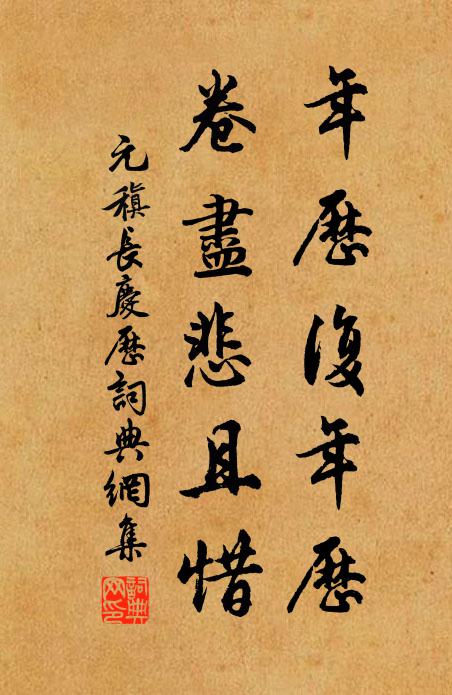 年歷復年歷
卷盡悲且惜
元稹長慶歷詞典網集
詞典
网印